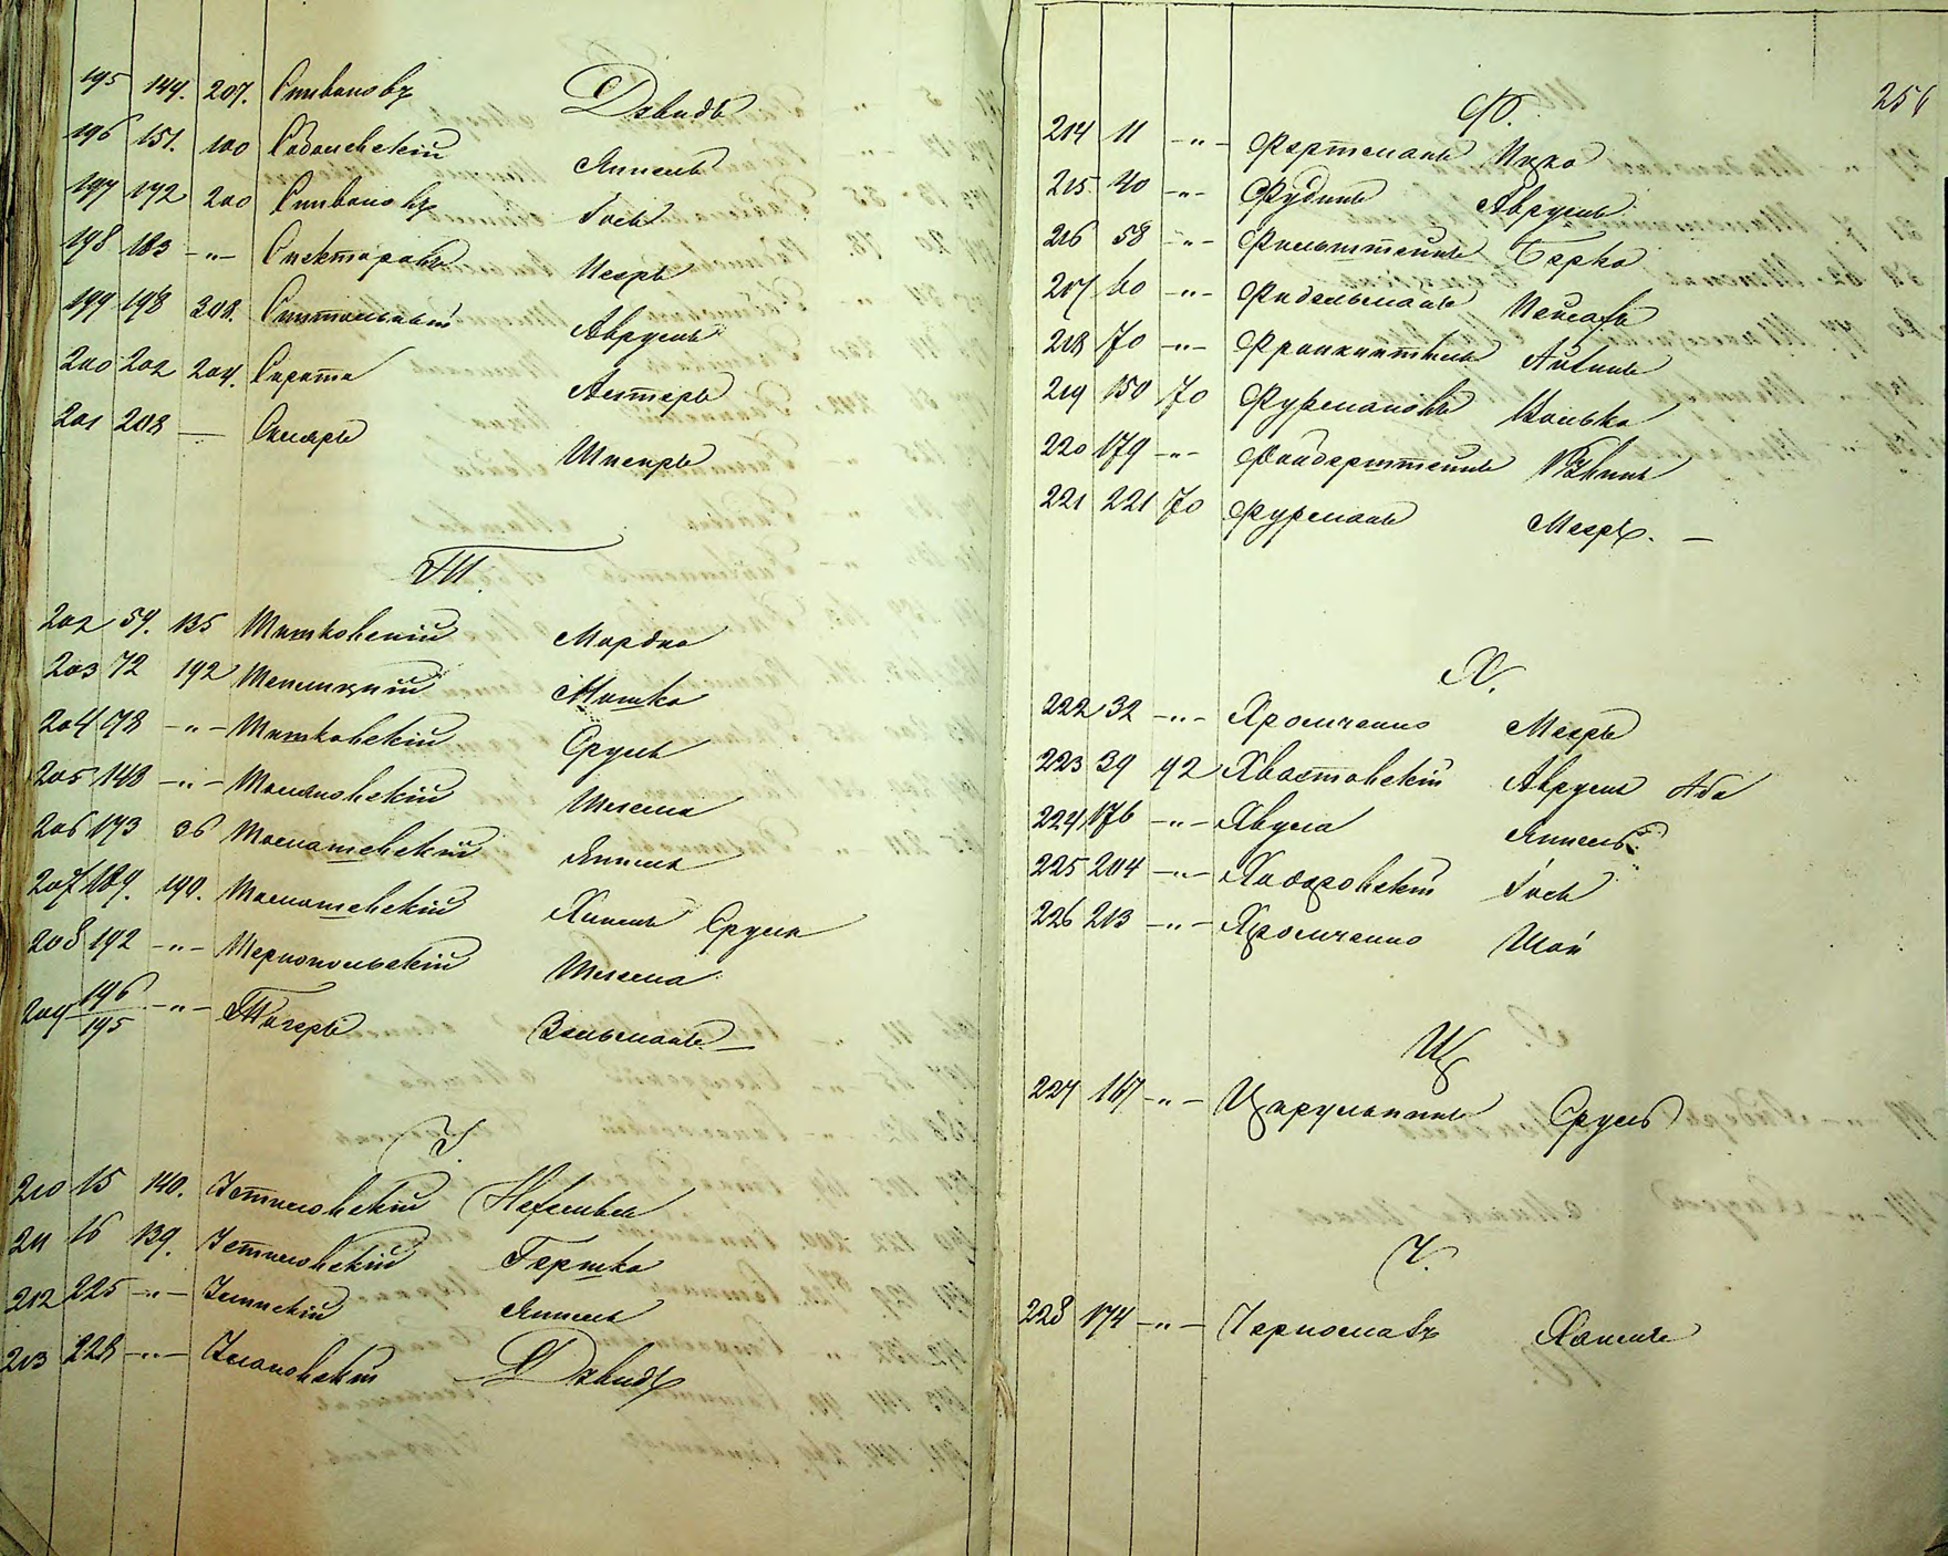 195 144. 207. Спивановъ Давидъ
196 151. 100 Садановскій Янкель
197 172 200 Спивановъ Гось
198 183 -"- Спекторовъ Мееръ
199 198 208. Аврумъ
200 202 204. Сирота Лейзеръ
201 208 — Скляръ Шмеръ
Т.
202 59. 135 Титковскій Мордко
203 72 192 Теплицкій Мошко
204 78 -"- Титковскій Сруль
205 148 -"- Томановскій Шлема
206 173 36 Томашевскій Янкель
207 189. 190. Томашевскій Хаимъ Сруль
208 192 -"- Тернопольскій Шлема
209 196/195 -"- Тагеръ Зельманъ
У.
210 15 140. Устиловскій Нафтула
211 16 139. Устиловскій Гершко
212 225 -"- Уманскій Янкель
213 228 -"- Улановскій Давидъ
256
Ф.
214 11 -"- Фортманъ Ицко
215 40 -"- Фудимъ Аврумъ
216 58 -"- Фильштейнъ Берко
217 60 -"- Фидельманъ Иойсифъ
218 70 -"- Франкинтель
219 150 70 Фурмановъ Волько
220 179 -"- Файдерштейнъ
221 221 70 Фурманъ Мееръ. —
Х.
222 32 -"- Хромченко Мееръ
223 39 42 Хвостовскій Аврумъ Аба
224 176 -"- Хвула Янкель
225 204 -"- Ходоровскій Гось
226 213 -"- Хромченко Шая
Ц
227 167 -"- Цирульникъ Сруль
Ч.
228 174 -"- Черномазъ Хаимъ